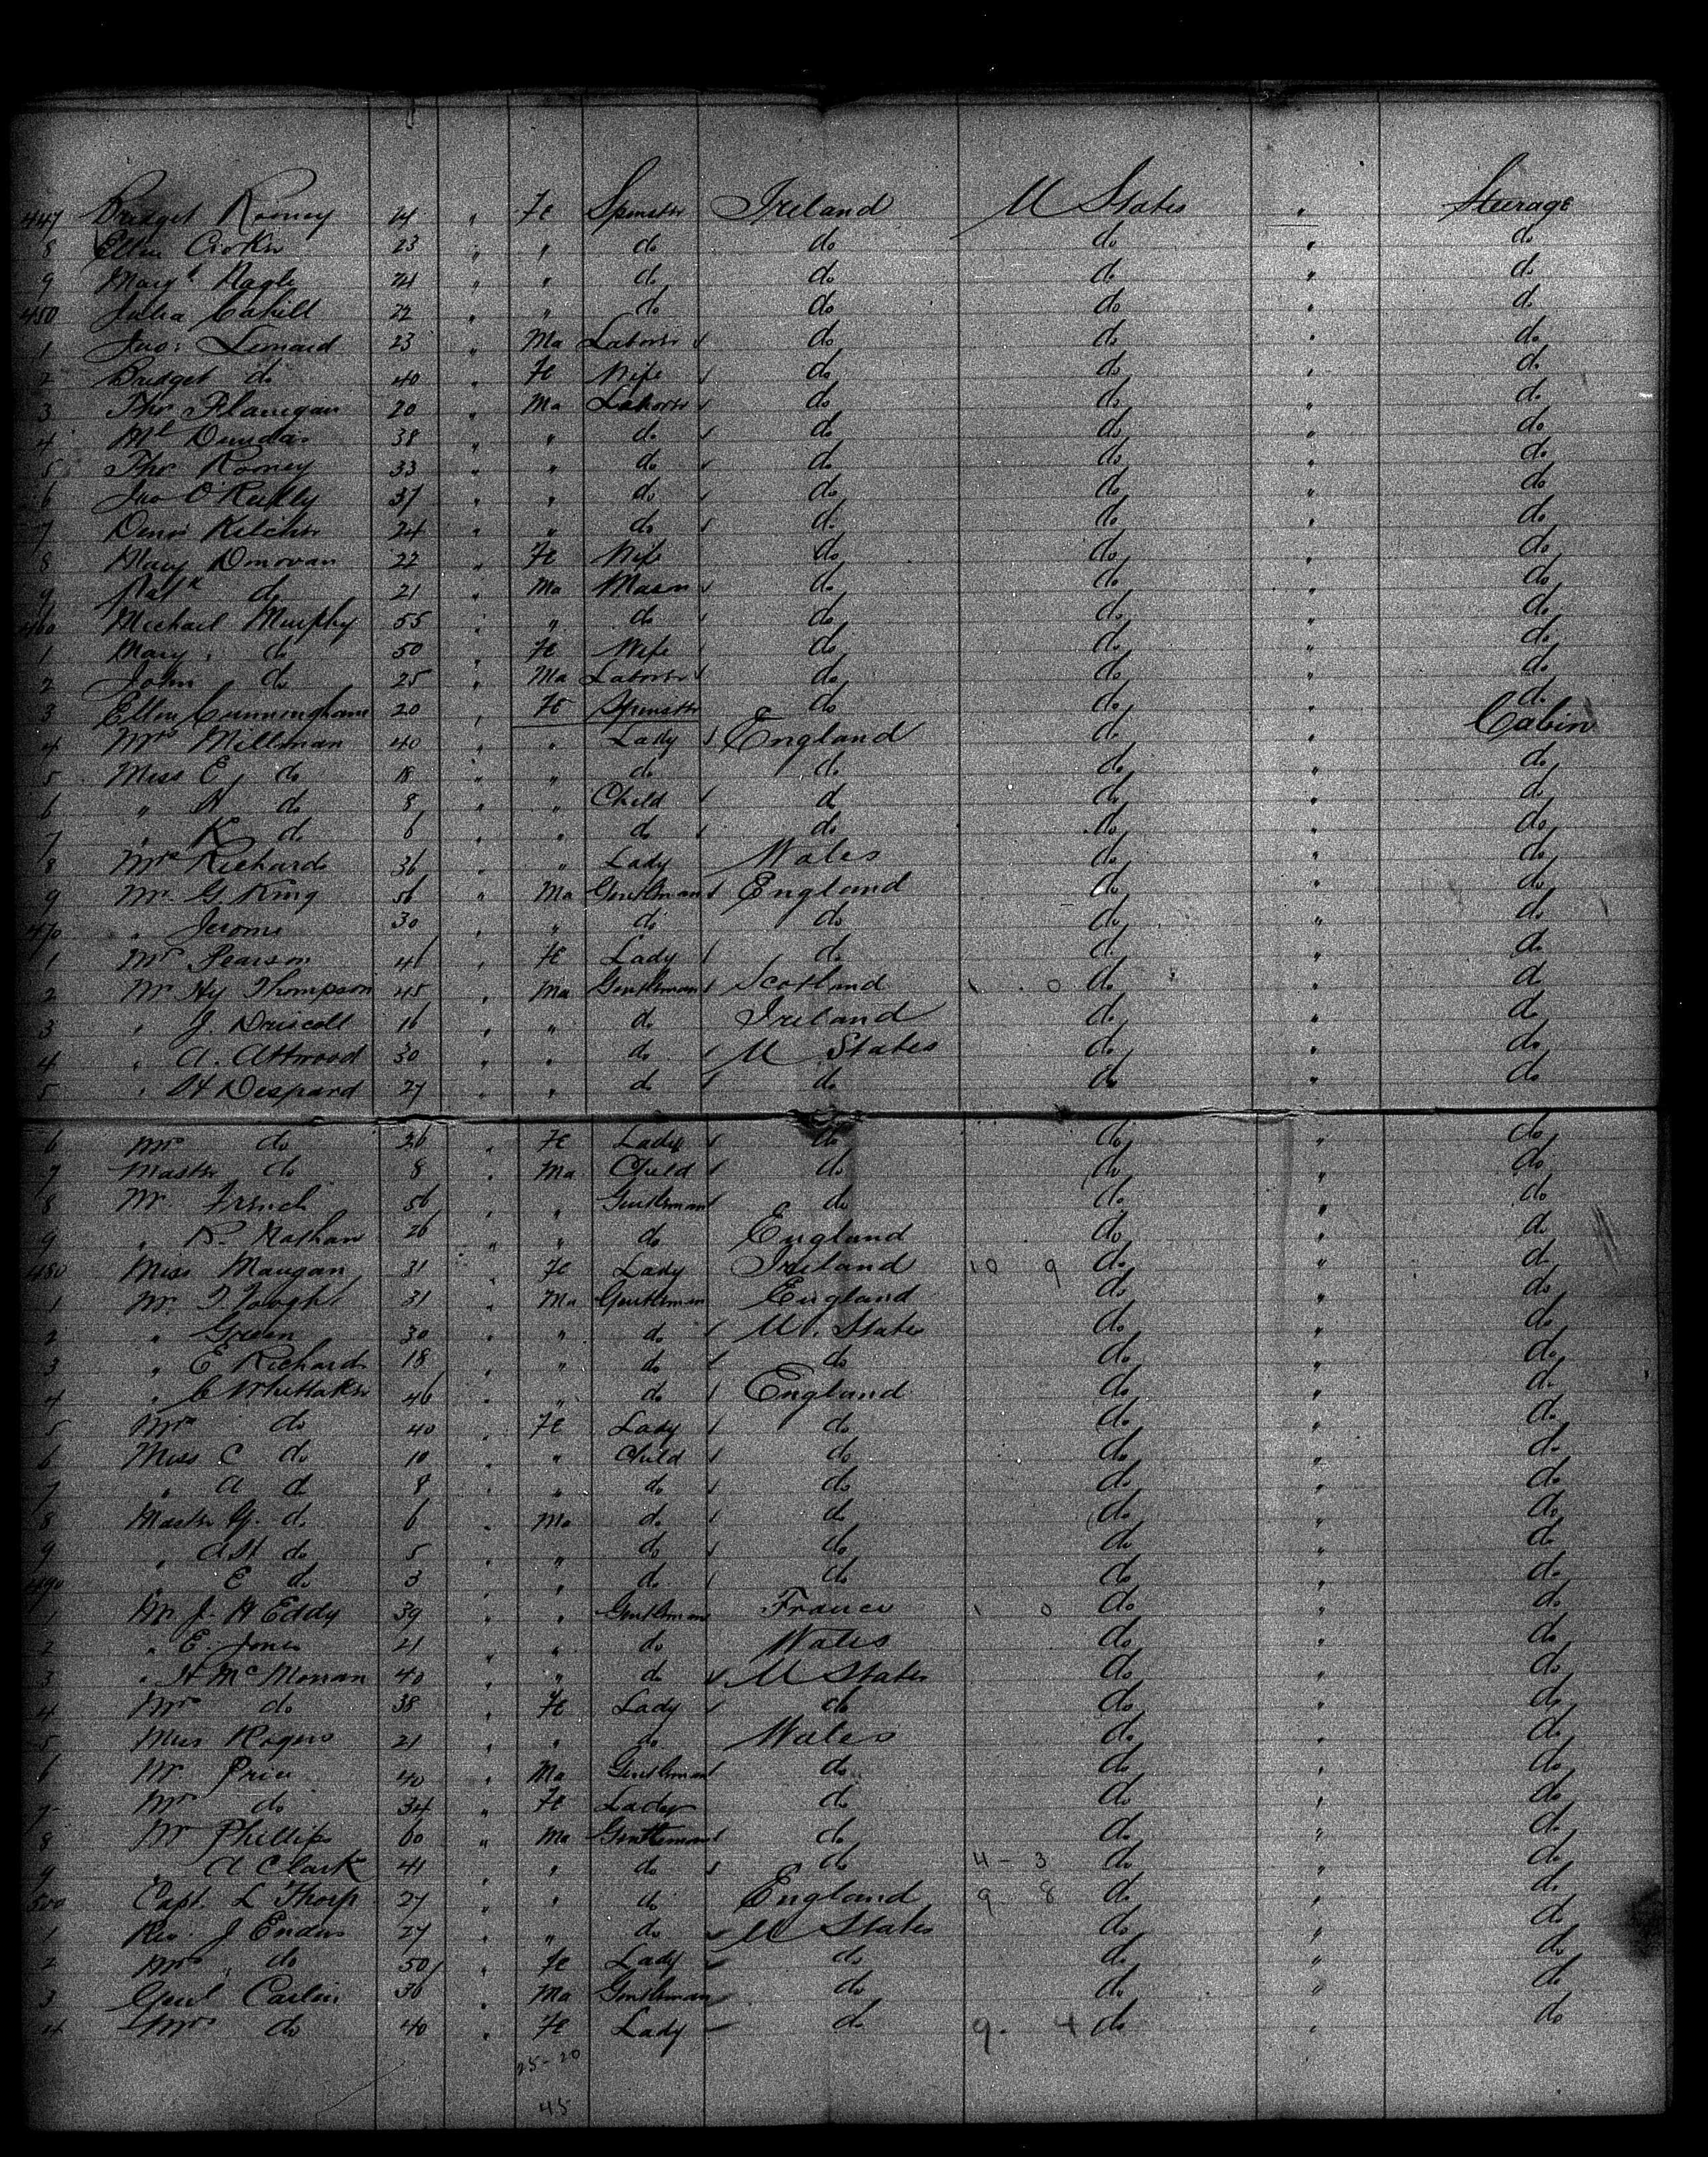 447 Bridget Rooney 24 " Fe Spinster Ireland U States " Steerage
8 Ellen Croker 23 " " do do do " do
9 Margt Nagle 21 " " do do do " do
450 Julia Cahill 22 " " do do do " do
1 Jno: Lenard 23 " Ma Laborer do do " do
2 Bridget do 40 " Fe Wife do do " do
3 Thos Flanigan 20 " Ma Laborer do do " do
4 Ml 38 " " do do do " do
5 Thos Rooney 33 " " do do do " do
6 Jno O'Reilly 37 " " do do do " do
7 Denis 24 " " do do do " do
8 Mary Donovan 22 " Fe Wife do do " do
9 Patk do 21 " Ma Mason do do " do
460 Michael Murphy 55 " " do do do " do
1 Mary do 50 " Fe Wife do do " do
2 John do 25 " Ma Laborer do do " do
3 Ellen Cunningham 20 " Fe Spinster do do " do
4 Mrs Millman 40 " " Lady England do " Cabin
5 Miss E do 18 " " do do do " do
6 " H do 8 " " Child do do " do
7 " K do 6 " " do do do " do
8 Mrs Richards 36 " " Lady Wales do " do
9 Mr. G. King 56 " Ma Gentleman England do " do
470 " Jerome 30 " " do do do " do
1 Mrs Pearson 41 " Fe Lady do do " do
2 Mr Hy Thompson 45 " Ma Gentleman Scotland do " do
3 " J. Driscoll 16 " " do Ireland do " do
4 " A. Attwood 30 " " do U States do " do
5 " H Despard 27 " " do do do " do
6 Mrs do 26 " Fe Lady do do " do
7 Master do 8 " Ma Child do do " do
8 Mr. French 56 " " Gentleman do do " do
9 " R. Nathan 26 " " do England do " do
480 Miss Maugan 31 " Fe Lady Ireland 10 9 do " do
1 Mr. 31 " Ma Gentleman England do " do
2 " Green 30 " " do U. States do " do
3 " E Richards 18 " " do do do " do
4 " C Whittaker 46 " " do England do " do
5 Mrs do 40 " Fe Lady do do " do
6 Miss C do 10 " " Child do do " do
7 " A do 8 " " do do do " do
8 Master G. do 6 " Ma do do do " do
9 " A H do 5 " " do do do " do
490 " E do 3 " " do do do " do
1 Mr. J. H Eddy 39 " " Gentleman France do " do
2 " E. Jones 21 " " do Wales do " do
3 " H McMorran 40 " " do U States do " do
4 Mrs do 38 " Fe Lady do do " do
5 Miss Rogers 21 " " do Wales do " do
6 Mr. Price 40 " Ma Gentleman do do " do
7 Mrs do 34 " Fe Lady do do " do
8 Mr Phillips 60 " Ma Gentleman do do " do
9 " A Clark 41 " " do do 4 - 3 do " do
500 Capt. L Thorp 27 " " do England 9 8 do " do
1 Rev. J Enders 27 " " do U States do " do
2 Mrs " do 50 " Fe Lady do do " do
3 Genl Carlin 36 " Ma Gentleman do do " do
4 Mrs do 40 " Fe Lady do 9. 4 do " do
25-20
45